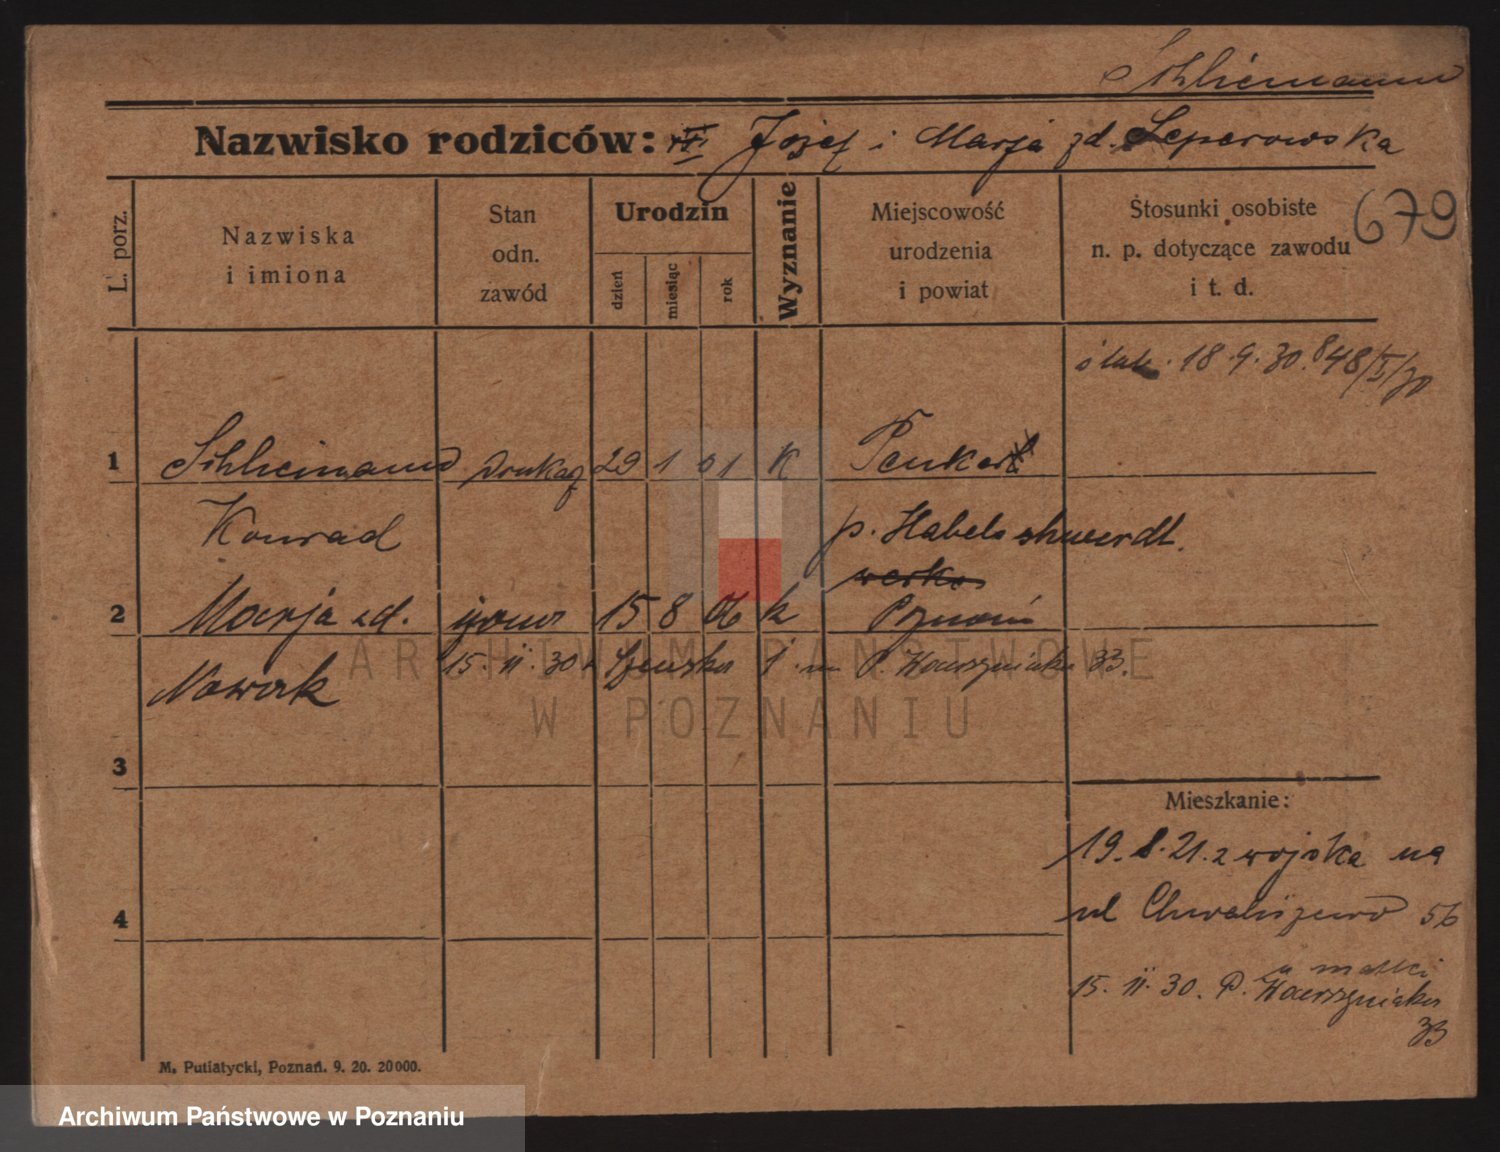 Schliemann
Nazwisko rodziców: Józef i Marja zd. Leperowska
679
L. porz.
Nazwiska
i imiona
Stan
odn.
zawód
Urodzin
dzień
miesiąc
rok
Wyznanie
Miejscowość
urodzenia
i powiat
Stosunki osobiste
n. p. dotyczące zawodu
i t. d.
18.9.30. 848/I/30
1 Schliemann drukarz 29 1 01 K
Konrad p. Habelschwerdt.
2 Marja zd. żona 15 8 06 k Poznań
Nowak 15. 11. 30. P. Wawrzyniaka 33.
3
Mieszkanie:
19.8.21. z wojska na
ul Chwaliszewo 56
4
u matki
15. 11. 30. P. Wawrzyniaka
33
M. Putiatycki, Poznań. 9. 20. 20000.
ARCHIWUM PAŃSTWOWE
W POZNANIU
Archiwum Państwowe w Poznaniu